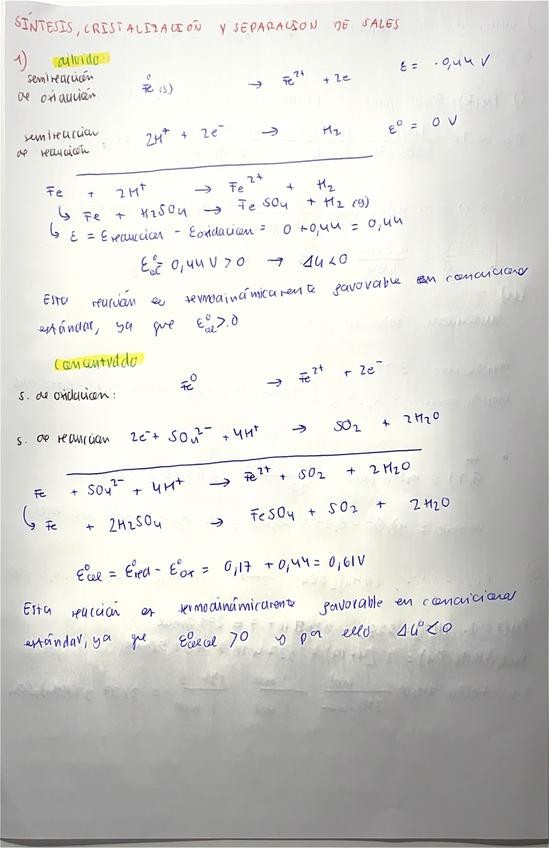 SÍNTESIS, CRISTALIZACIÓN Y SEPARACION DE SALES
1) diluido:
semireacción de oxidación Fe⁰(s) → Fe²⁺ + 2e ε = -0,44 V
semireaccion de reducción: 2H⁺ + 2e⁻ → H₂ ε⁰ = 0 V
Fe + 2H⁺ → Fe²⁺ + H₂
↳ Fe + H₂SO₄ → FeSO₄ + H₂ (g)
↳ ε = εreduccion - εoxidacion = 0 + 0,44 = 0,44
ε⁰cel = 0,44 V > 0 → ΔG < 0
Esta reacción es termodinámicamente favorable en condiciones
estándar, ya que ε⁰cel > 0
Concentrado
s. de oxidacion: Fe⁰ → Fe²⁺ + 2e⁻
s. de reducción 2e⁻ + SO₄²⁻ + 4H⁺ → SO₂ + 2H₂O
Fe + SO₄²⁻ + 4H⁺ → Fe²⁺ + SO₂ + 2H₂O
↳ Fe + 2H₂SO₄ → FeSO₄ + SO₂ + 2H₂O
ε⁰cel = ε⁰red - ε⁰ox = 0,17 + 0,44 = 0,61V
Esta reacción es termodinámicamente favorable en condiciones
estándar, ya que ε⁰cel > 0 y por ello ΔG⁰ < 0